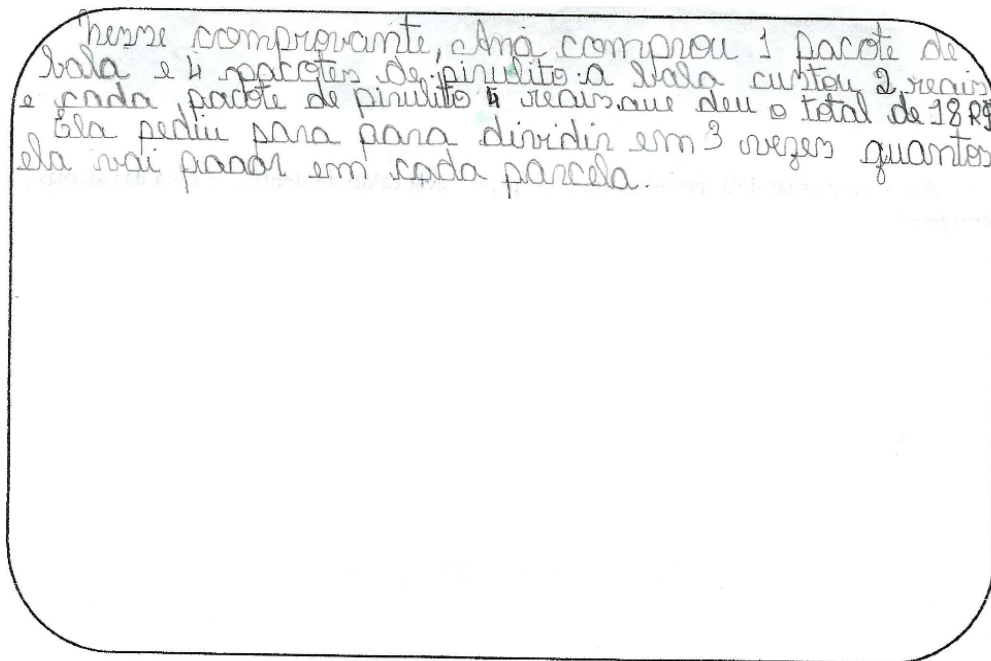 Nesse comprovante, Ana comprou 1 pacote de
bala e 4 pacotes de pirulito a bala custou 2 reais
e cada pacote de pirulito 4 reais que deu o total de 18 R$
Ela pediu para para dividir em 3 vezes quantos
ela vai pagar em cada parcela.